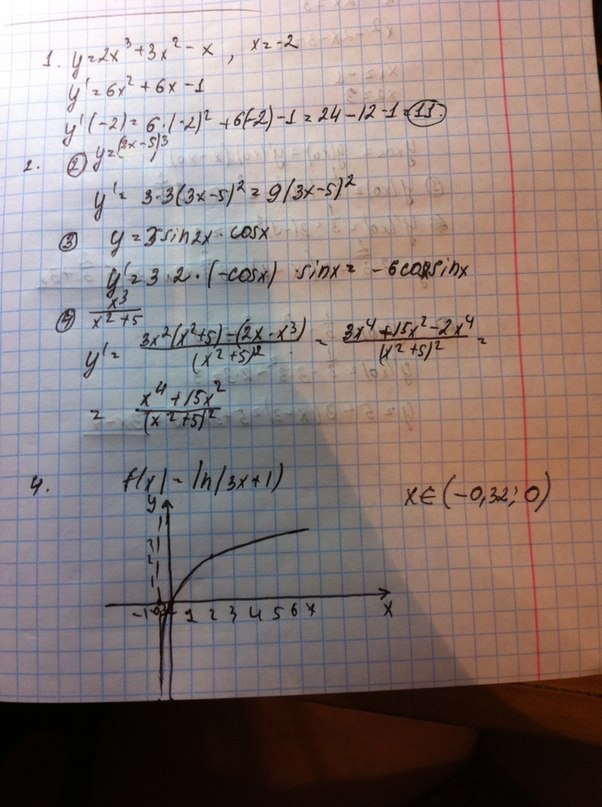 1. y=2x³+3x²-x, x=-2
y'=6x²+6x-1
y'(-2)=6·(-2)²+6(-2)-1=24-12-1=11.
2. ② y=(3x-5)³
y'= 3·3(3x-5)²=9(3x-5)²
③ y=3sin2x·cosx
y'=3·2·(-cosx)·sinx=-6cosxsinx
④ x³/(x²+5)
y'= (3x²(x²+5)-(2x·x³))/(x²+5)² = (3x⁴+15x²-2x⁴)/(x²+5)² =
= (x⁴+15x²)/(x²+5)²
4. f(x)=ln(3x+1) x∈(-0,32; 0)
y
-1 1 2 3 4 5 6 x